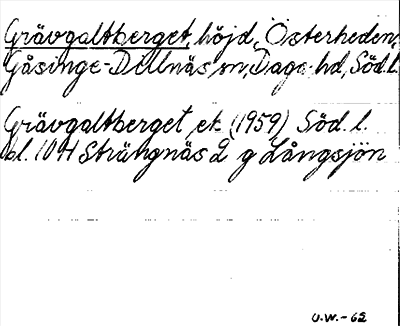 Grävgaltberget, höjd, Österheden,
Gåsinge-Dillnäs sn, Daga hd, Söd. l.
Grävgaltberget ek. (1959) Söd. l.
bl. 10H Strängnäs 2 g Långsjön
U.W.-62